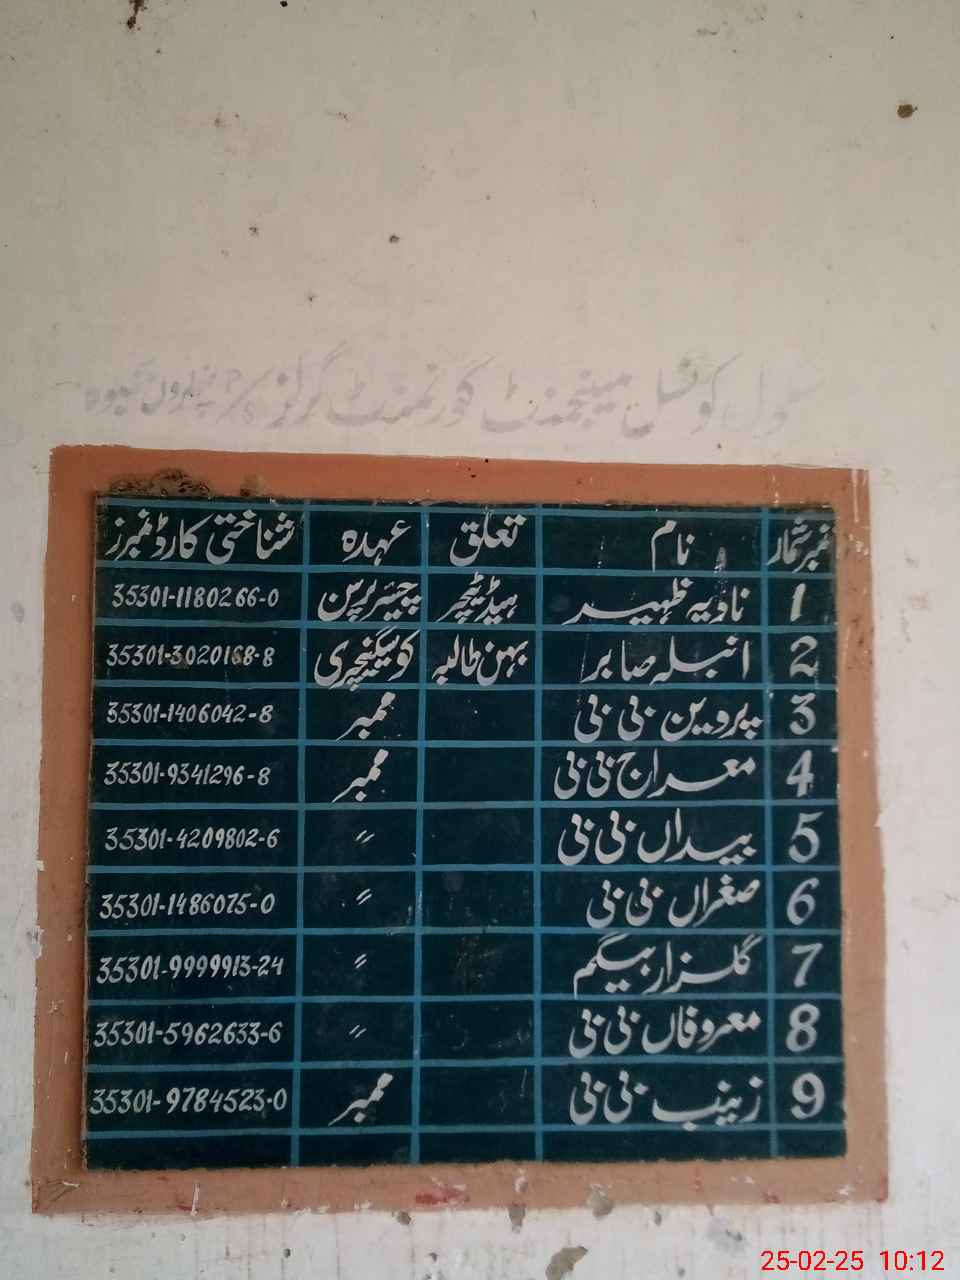 سکول کونسل مینجمنٹ گورنمنٹ گرلز
نمبر شمار نام تعلق عہدہ شناختی کارڈ نمبرز
1 نادیہ ظہیر ہیڈ ٹیچر چیئر پرسن 35301-1180266-0
2 انیلہ صابر بہن طالبہ کو سیکنیچری 35301-3020168-8
3 پروین بی بی ممبر 35301-1406042-8
4 معراج بی بی ممبر 35301-9341296-8
5 بیداں بی بی 〃 35301-4209802-6
6 صغراں بی بی 〃 35301-1486075-0
7 گلزار بیگم 〃 35301-9999913-24
8 معروفاں بی بی 〃 35301-5962633-6
9 زینب بی بی ممبر 35301-9784523-0
25-02-25 10:12